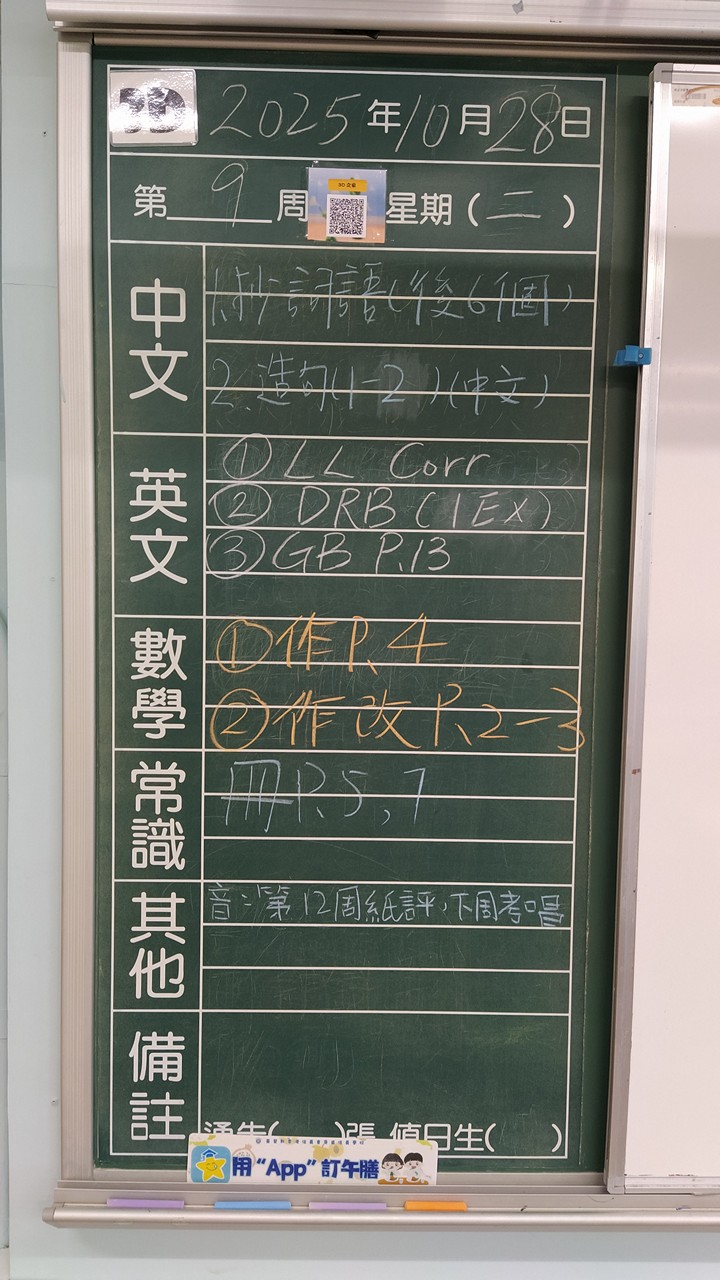 3D 2025年10月28日
第 9 周 星期(二)
3D
中文
1.抄詞語(後6個)
2.造句(1-2)(中文)
英文
① LL Corr
② DRB (1EX)
③ GB P.13
數學
① 作P.4
② 作改P.2-3
常識
冊P.5,7
其他
音:第12周紙評,下周考唱
備註
通告( )張 值日生( )
用“App”訂午膳